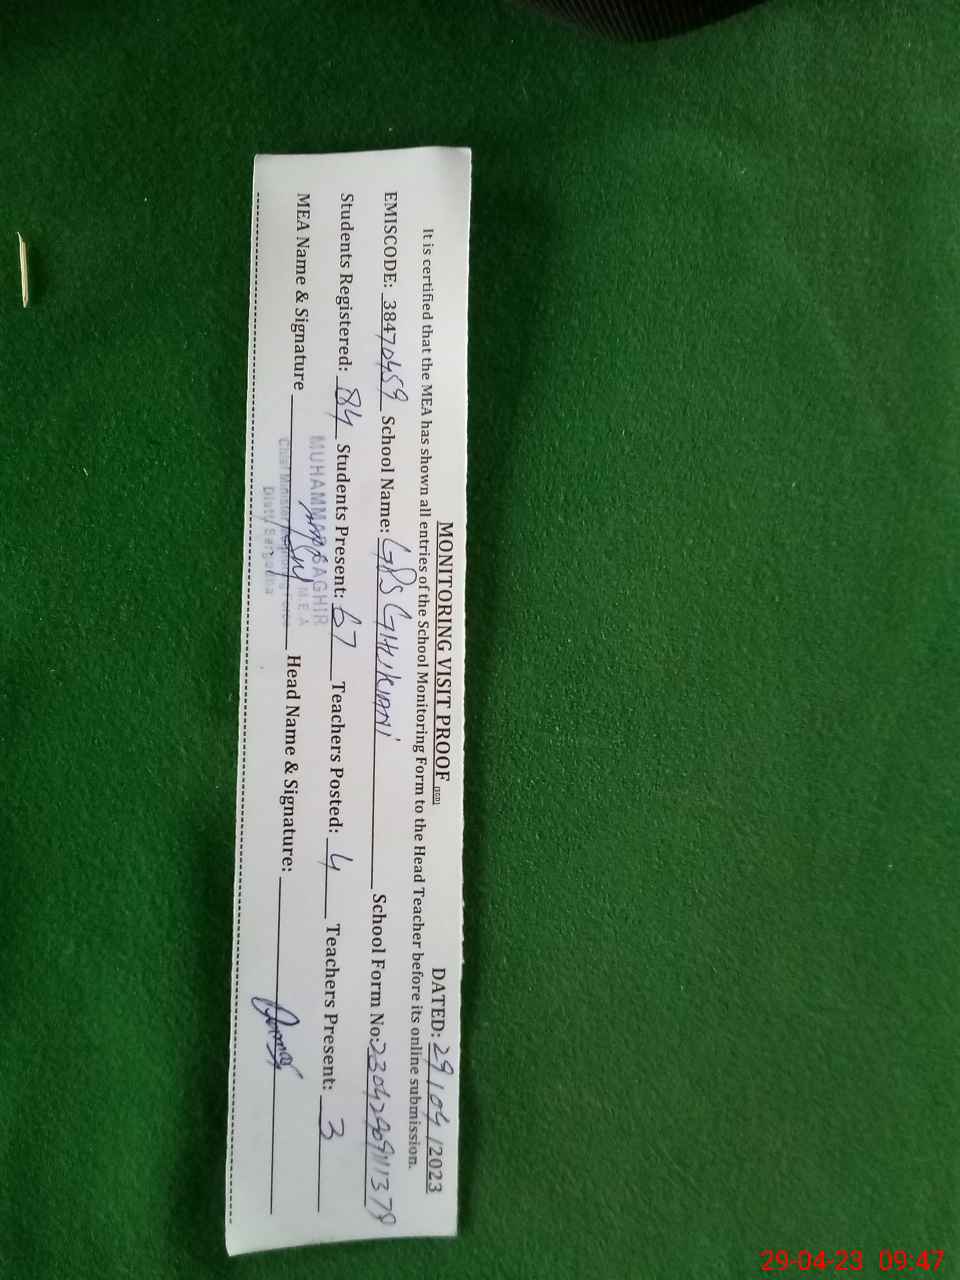 MONITORING VISIT PROOF DATED: 29/04/2023
It is certified that the MEA has shown all entries of the School Monitoring Form to the Head Teacher before its online submission.
EMISCODE: 38470459 School Name: GPS GHUKIANI School Form No:
Students Registered: 84 Students Present: 67 Teachers Posted: 4 Teachers Present: 3
MEA Name & Signature Head Name & Signature:
MUHAMMAD SAGHIR
M.E.A
Chief Minister
Distt: Sargodha
29-04-23 09:47